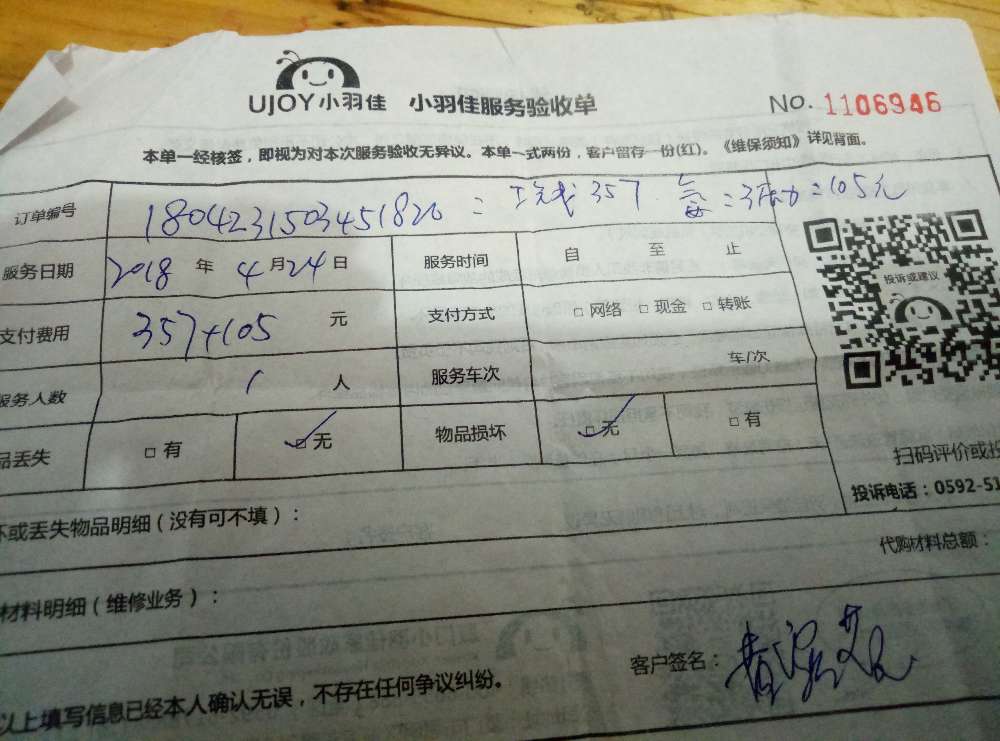 UJOY小羽佳 小羽佳服务验收单 NO. 1106946
本单一经核签，即视为对本次服务验收无异议。本单一式两份，客户留存一份(红)。《维保须知》详见背面。
订单编号 1804231503451820 = 357 = 105元
服务日期 2018 年 4 月 24 日 服务时间 自 至 止
投诉或建议
支付费用 357+105 元 支付方式 □ 网络 □ 现金 □ 转账
服务人数 1 人 服务车次 车/次
品丢失 □ 有 □ 无 物品损坏 □ 无 □ 有
扫码评价或投
投诉电话：0592-51
坏或丢失物品明细（没有可不填）：
代购材料总额：
材料明细（维修业务）：
客户签名：
以上填写信息已经本人确认无误，不存在任何争议纠纷。